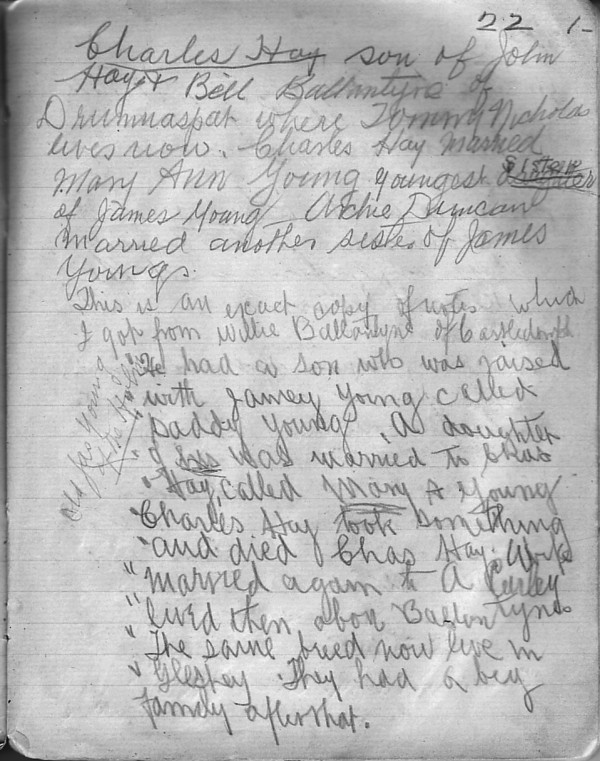 22 1-
Charles Hay son of John
Hay & Bell Ballantyne of
Drumnaspat where Tommy Nichola
lives now. Charles Hay married
Mary Ann Young youngest sister
of James Young Archie Duncan
married another sister of James
Youngs.
This is an exact copy of notes which
I got from Willie Ballantyne of
"He had a son who was raised
"with Jamey Young called
"paddy Young A daughter
"of his was married to Chas
"Hay, called Mary A Young
"Charles Hay took something
"and died Chas Hay's Wife
"married again to A
"lived then abov Ballantyne
"The same breed now live in
"They had a big
family after that.
Old Jas Young